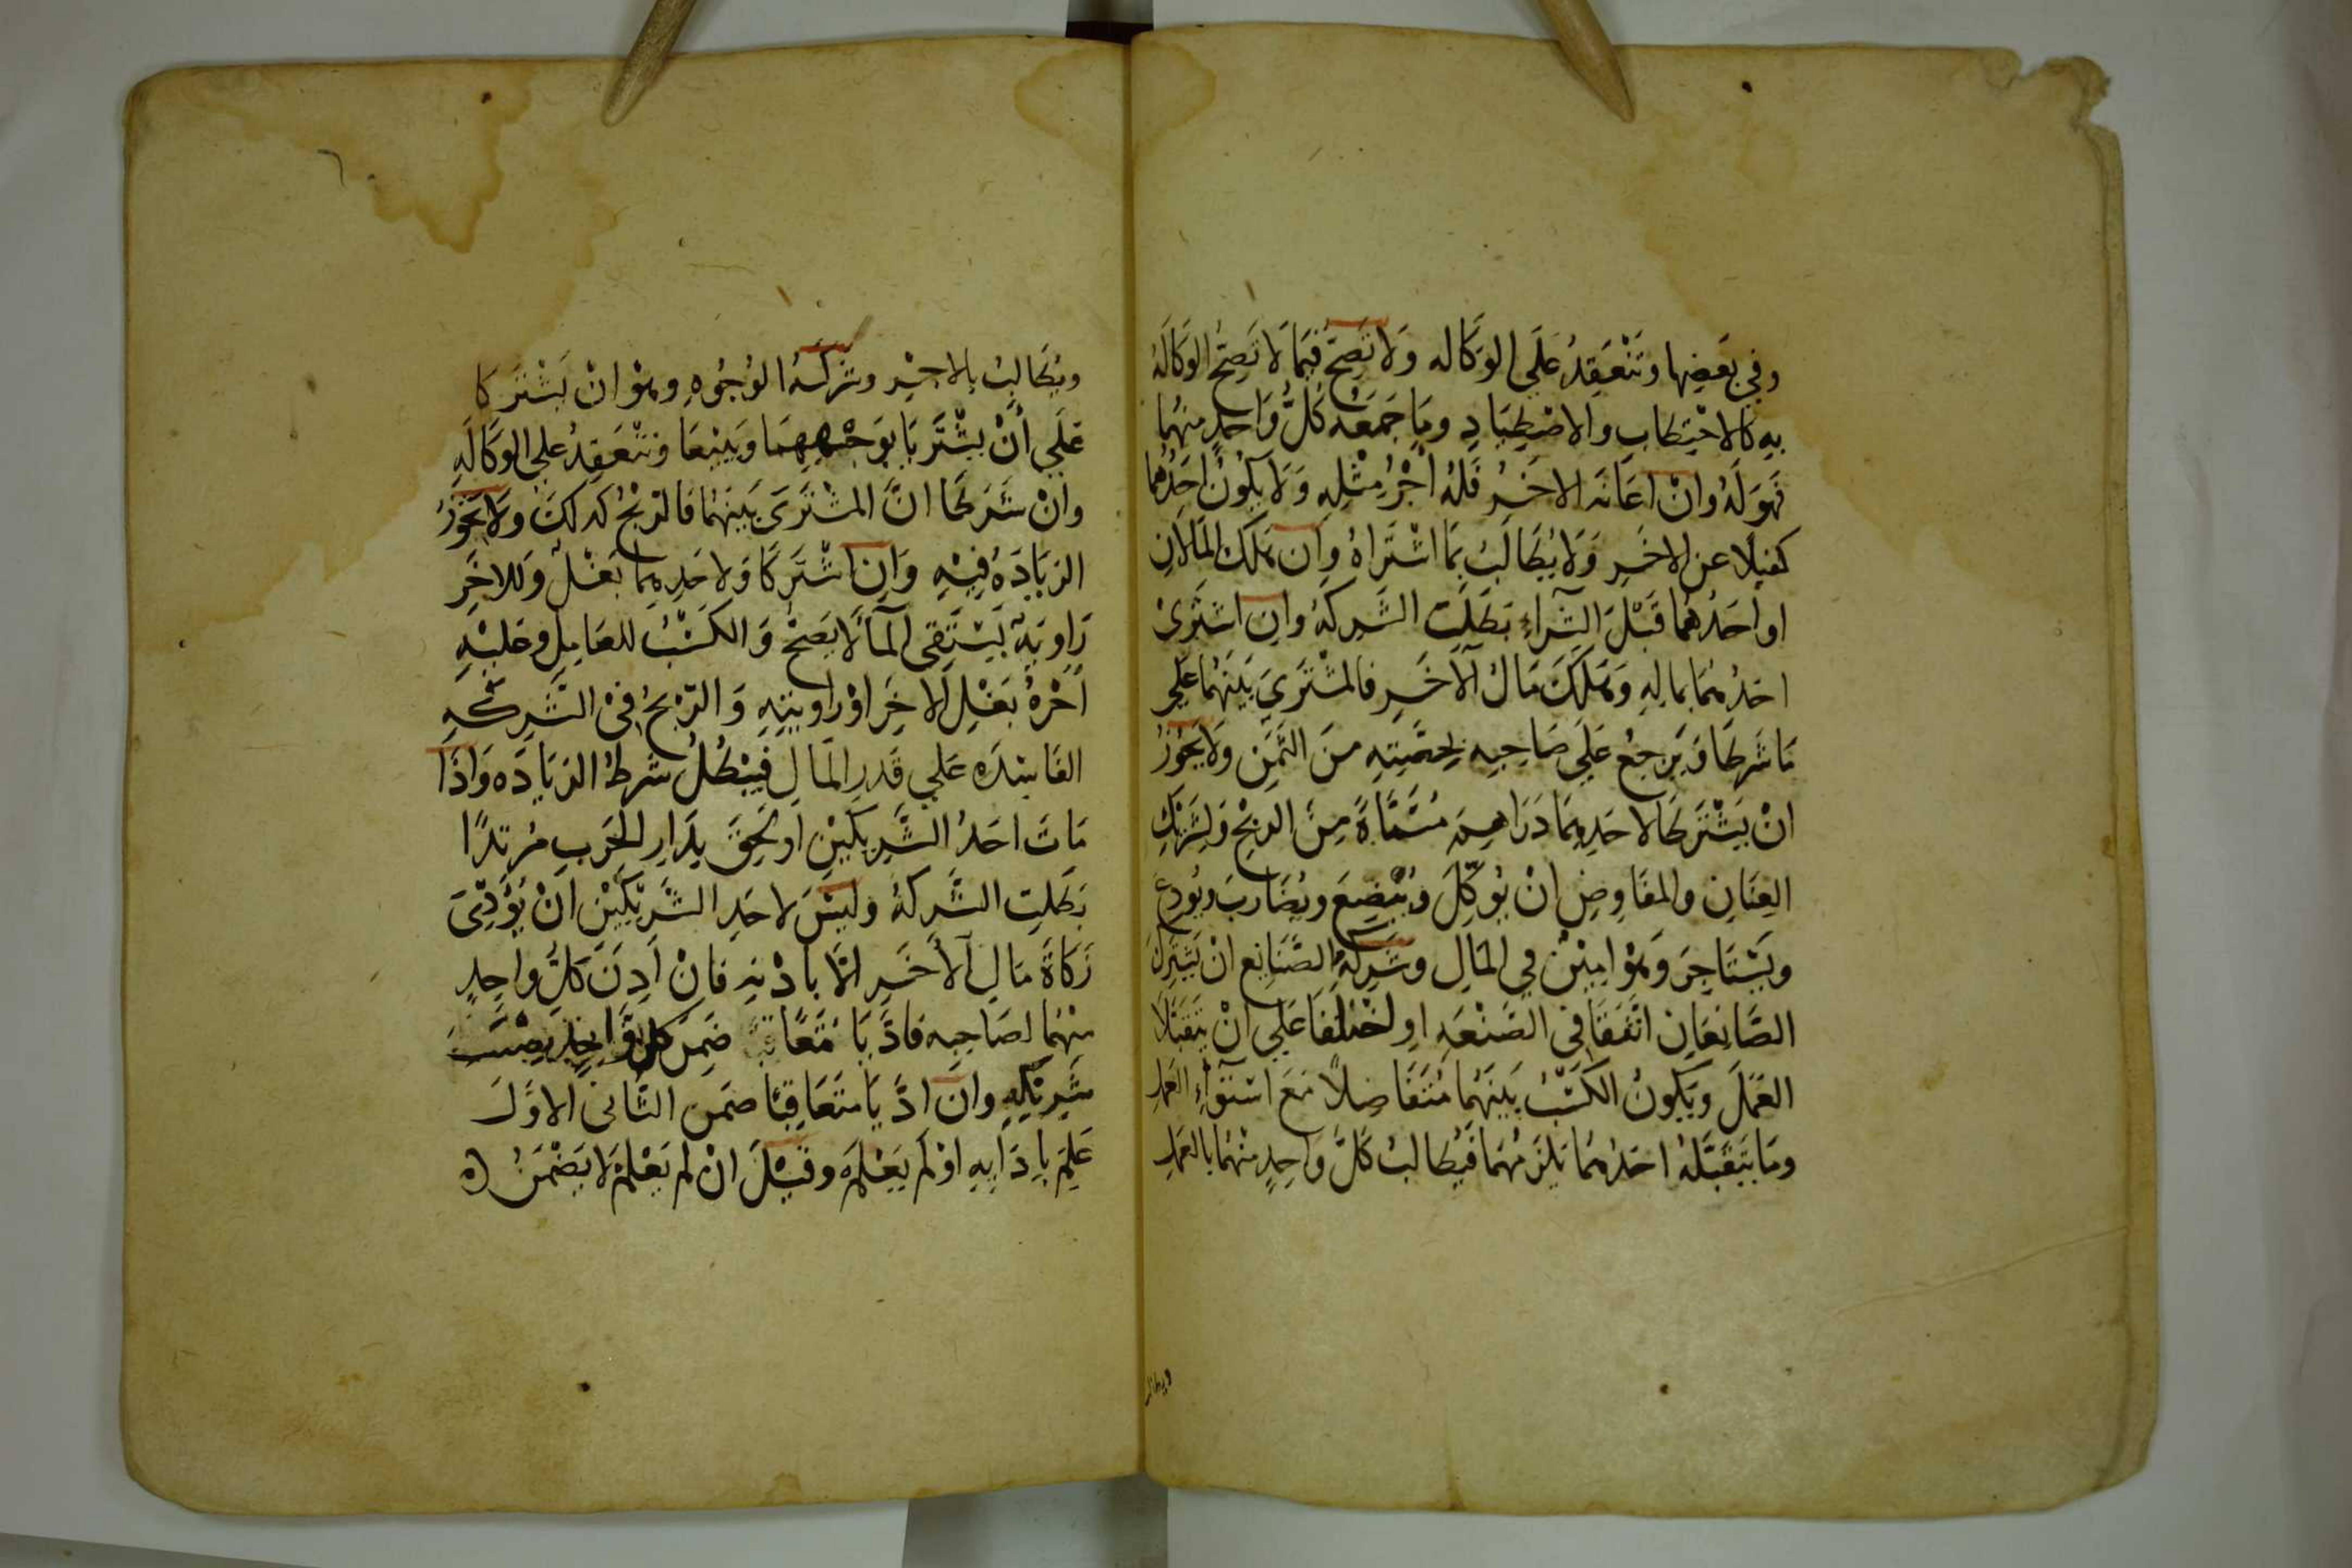 وفي بَعضِها وتَنْعَقِدُ عَلَى الوَكَاله وَلَا تَصِحُّ فيمَا لَا تَصِحُّ الوكَالَهُ
بِهِ كالاحْتِطَابِ والاصْطِيَادِ ومَا جَمَعَهُ كُلُّ وَاحِدٍ منهُما
فَهوَ لَهُ وانْ اعَانَه الاخَرُ فَلَهُ أَجْرُ مِثْلِهِ وَلَا يَكُونُ احَدُهُما
كفيلًا عن الاخَرِ وَلَا يُطَالَبُ بمَا اشْتَراهُ وَان هَلَكَ المَالانِ
او احَدُهُمَا قَبْلَ الشِّراءِ بَطَلَتِ الشَّركَهُ وان اشتَرىٰ
احَدُهُمَا بمالِهِ وَهَلَكَ مَالُ الآخَرِ فالمُشْتَرَىٰ بَيْنَهُما عَلَى
مَا شَرطَا وَيَرجعُ عَلَى صَاحِبِه بحِصَّتِهِ منَ الثَّمَنِ وَلَا يَجُوزُ
انْ يَشْتَرطَا لاحَدِهِمَا دَرَاهِمَ مُسَمَّاةً مِنَ الربْحِ وَلِشَرِيْكِ
العِنَانِ والمفَاوِضِ انْ يُوَكِّلَ وَيُبْضِعَ ويُضَارِبَ ويُودِعَ
ويَسْتَاجِرَ وَهُوَ امِيْنٌ في المَالِ وشَرِكَةِ الصَّنَايِع انْ يَشْتَرِكَ
الصَّانِعَانِ اتَّفَقَا فى الصَّنْعَهِ اوِ اخْتَلَفَا عَلَي انْ يَتَقَبَّلَا
العَمَلَ وَيَكونُ الكَسْبُ بَينَهُما مُتَفَاضِلاً مَعَ اسْتوآءِ العَمَلِ
ومَا يَتَقَبَّلُهُ احَدُهُمَا يَلزَمُهُمَا فَيُطَالبُ كُلُّ وَاحِدٍ منْهُمَا بالعَمَلِ
ويطالب
ويُطَالِبُ بالاجْرِ وشركَهُ الوُجُوهِ وهُوَ انْ يَشْتَرِكا
عَلَي أنْ يشْتَرِيَا بوَجْهِهِمَا وَيَبِيْعَا وَتَنْعَقِدُ علي الوكَالَهِ
وانْ شَرَطَا انَّ المشْتَرَىٰ بَيْنَهُمَا فالرّبْحُ كذلكَ وَلَا يَجُوزُ
الزيَادَهُ فِيْهِ وَانِ اشْتَركَا وَلاحَدِهِمَا بَغْلٌ وَللاخَرِ
رَاوِيَهٌ يَسْتَقِى المَآءَ لَا يَصِحُّ وَالكَسْبُ للعَامِلِ وعَلَيْهِ
أجْرهُ بَغْلِ الاخَرِ اوْ رَاوِيَتِهِ وَالرّبْحُ فىْ الشَّرِكَهِ
الفَاسِدَهِ عَلي قَدرِ المَالِ فَيَبْطُلُ شَرطُ الزيَادَه وَاذَا
مَاتَ احَدُ الشَّرِيكَيْنِ او لَحِقَ بِدَارِ الحَرَبِ مُرتدًا
بَطَلَتِ الشَّركَهُ وليْسَ لاحَدِ الشَّريْكَيْنِ انْ يُؤَدِّىَ
زَكَاةَ مَالِ الآخَرِ الَّا باذْنِهِ فانْ اَذِنَ كُلُّ واحِدٍ
منْهُمَا لصَاحِبِه فادَّيَا مَعًا ضَمِنَ كل وَاحِدٍ نصِيْبَ
شَرِيْكِهِ وان ادَّيَا متَعَاقِبًا ضمَن الثَّانى الاوَّلَ
عَلِمَ بادَايِهِ اوْ لَم يَعْلَمْ وقيْلَ انْ لم يَعْلَمْ لَا يَضْمَنُ ه